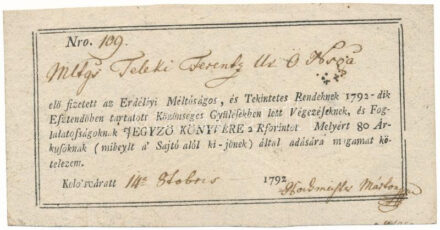 Nro. 109.
Mltgs Teleki Ferentz Ur Ö Nsga
elő fizetett az Erdélyi Méltóságos, és Tekintetes Rendeknek 1792-dik
Esztendőben tartatott Közönséges Gyűlésékben lett Végezéseknek, és Fog-
lalatosságoknak JEGYZŐ KÖNYVÉRE 2 Rforintot Melyért 80 Ár-
kusoknak (mihelyt a' Sajtó alól ki-jönek) által adására magamat kö-
telezem.
Kolo'sváratt 14a 8tobris 1792
Hochmeister Márton